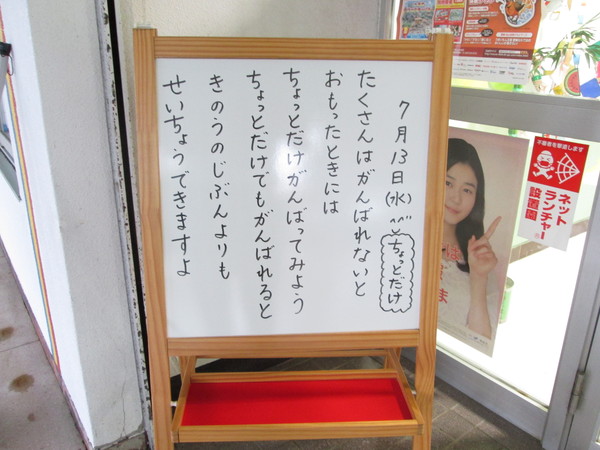 7月13日(水)
ちょっとだけ
たくさんはがんばれないと
おもったときには
ちょっとだけがんばってみよう
ちょっとだけでもがんばれると
きのうのじぶんよりも
せいちょうできますよ
不審者を撃退します
ネット
ランチャー
設置園